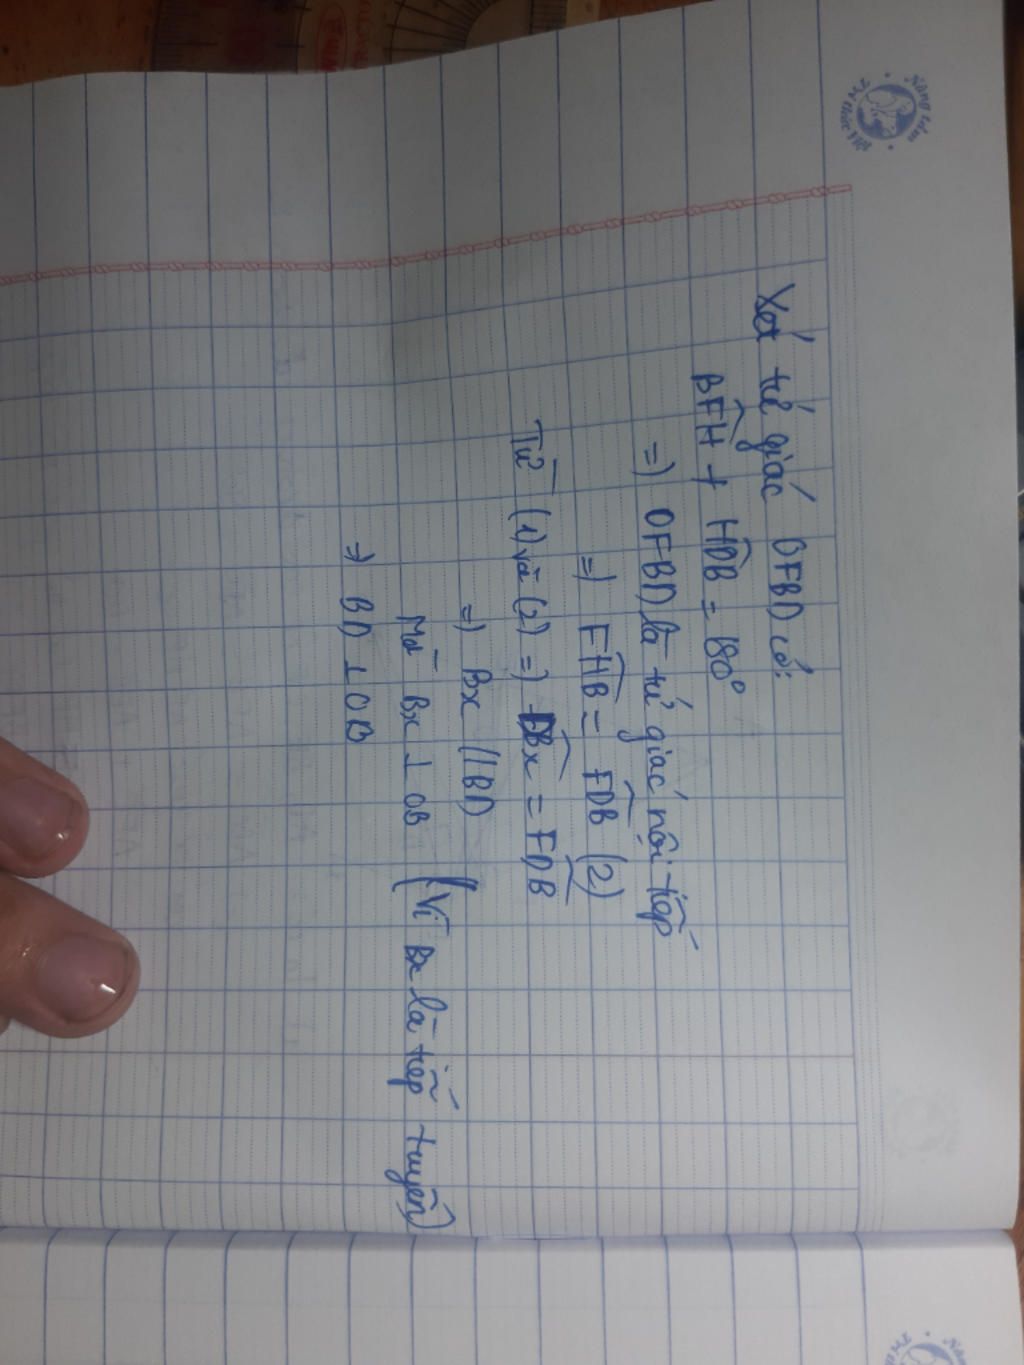 Xét tứ giác OFBD có:
BFH + HDB = 180°
=) OFBD là tứ giác nội tiếp
=) FHB = FDB (2)
Từ (1) và (2) =) Bx = FDB
=) Bx // BD
Mà Bx ⊥ OB (Vì Bx là tiếp tuyến)
=) BD ⊥ OB